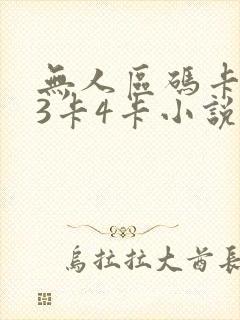 無人區碼卡
3卡4卡小說
烏拉拉大酋長